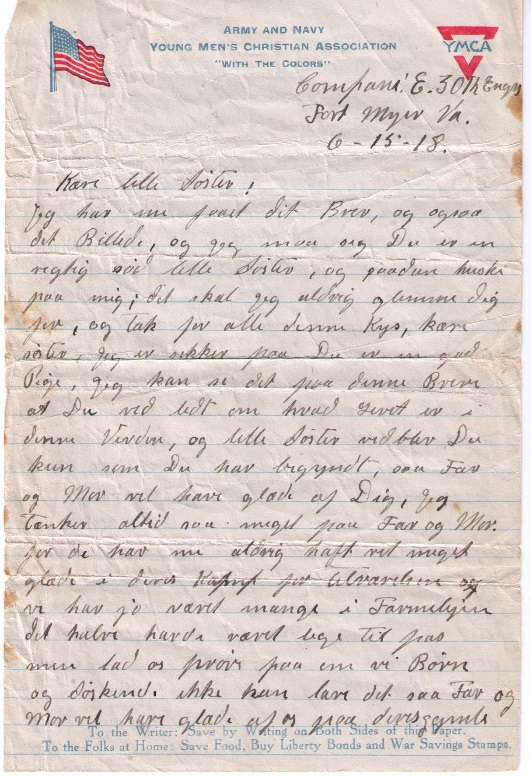 ARMY AND NAVY
YOUNG MEN'S CHRISTIAN ASSOCIATION
"WITH THE COLORS"
YMCA
Compani. E. 30th Engrs
Fort Myer Va.
6-15-18.
Kære lille Søster!
Jeg har nu faaet dit Brev, og ogsaa
det Billede, og jeg maa sige Du er en
regtig sød lille Søster, og saadan huske
paa mig; det skal jeg aldrig glemme dig
for, og tak for alle denne Kys, kære
søster, jeg er sikker paa Du er en god
Pige, jeg kan se det paa denne Breve
at Du ved lidt om hvad Livet er i
denne Verden, og lille Søster vedblev Du
kun som Du har begyndt, saa Far
og Mor vil have glæde af Dig, Jeg
tænker altid saa meget paa Far og Mor.
for de har nu aldrig haft ret meget
glæde i deres Kamp for og
vi har jo været mange i Farmelijen
det halve havde været lige til pas
men lad os prøve paa om vi Børn
og Søskende ikke kan lave det saa Far og
Mor vil have glæde af os paa deres gamle
To the Writer: Save by Writing on Both Sides of this Paper.
To the Folks at Home: Save Food, Buy Liberty Bonds and War Savings Stamps.